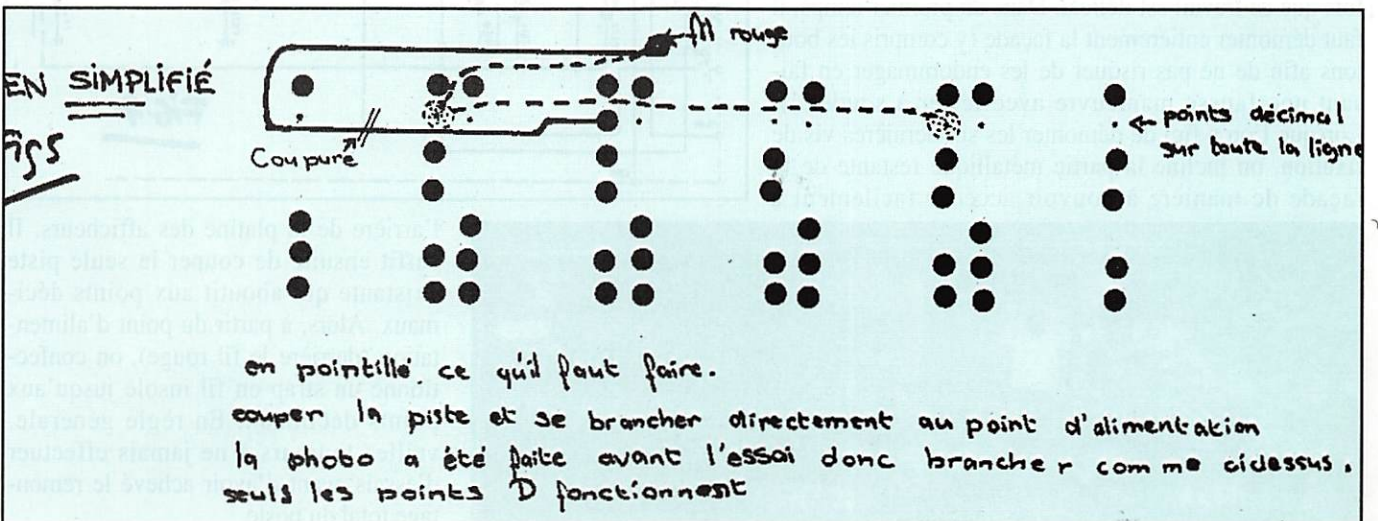 fil rouge
EN SIMPLIFIÉ
Coupure
points decimal
sur toute la ligne
en pointillé ce qu'il faut faire.
couper la piste et se brancher directement au point d'alimentation
la photo a été faite avant l'essai donc brancher comme cidessus.
seuls les points D fonctionnent